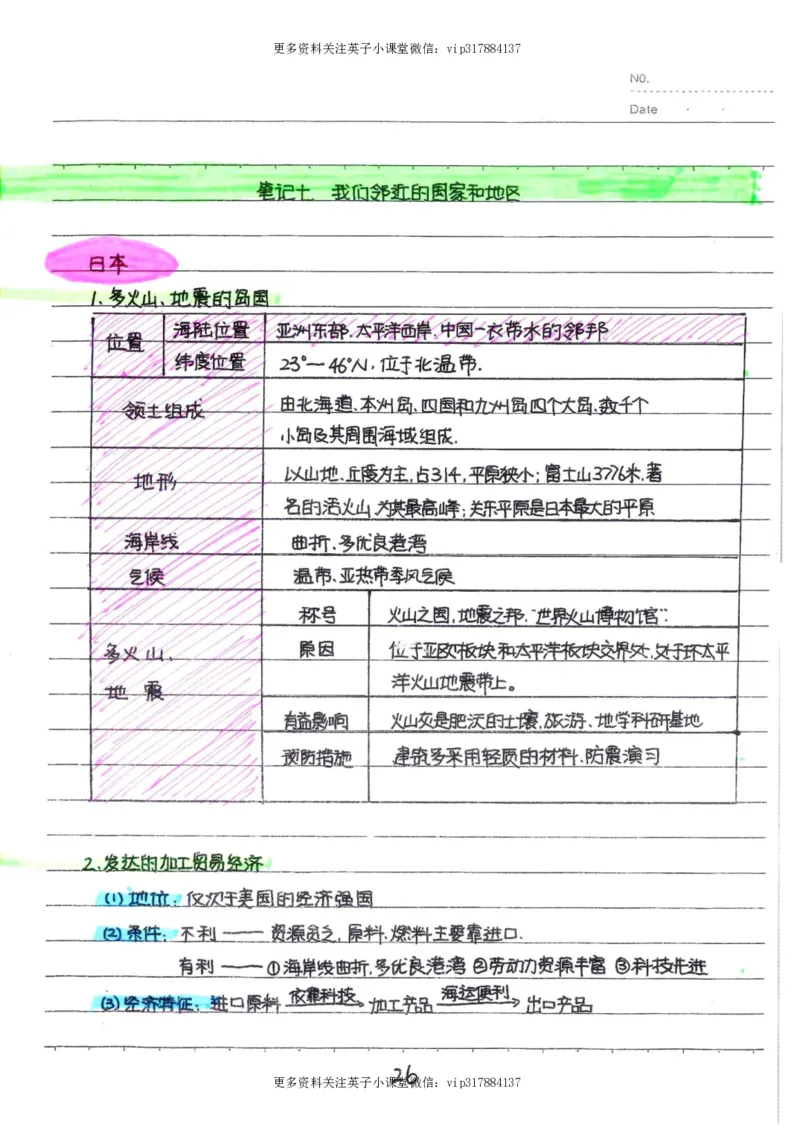 更多资料关注英子小课堂微信：vip317884137
NO.
Date
笔记十 我们邻近的国家和地区
日本
1、多火山、地震的岛国
位置 海陆位置 亚洲东部、太平洋西岸、中国一衣带水的邻邦
纬度位置 23°—46°N，位于北温带.
领土组成 由北海道、本州岛、四国和九州岛四个大岛、数千个
小岛及其周围海域组成.
地形 以山地、丘陵为主，占314，平原狭小；富士山3776米，著
名的活火山，为其最高峰；关东平原是日本最大的平原
海岸线 曲折、多优良港湾
气候 温带、亚热带季风气候
多火山、
地震
称号 火山之国，地震之邦，“世界火山博物馆”.
原因 位于亚欧板块和太平洋板块交界处，处于环太平
洋火山地震带上。
有益影响 火山灰是肥沃的土壤、旅游、地学科研基地
预防措施 建筑多采用轻质的材料、防震演习
2.发达的加工贸易经济
(1)地位：仅次于美国的经济强国
(2)条件：不利——资源贫乏，原料、燃料主要靠进口.
有利——①海岸线曲折，多优良港湾 ②劳动力资源丰富 ③科技先进
(3)经济特征：进口原料 依靠科技→ 加工产品 海运便利→ 出口产品
26
更多资料关注英子小课堂微信：vip317884137